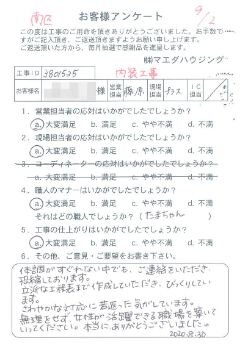 南区
9/2
お客様アンケート
この度は工事のご用命を頂きありがとうございました。お手数で
すがご記入頂き、ご返送頂きますようお願い申し上げます。
ご返送頂いた方から、毎月抽選で感謝品を進呈します。
㈱マエダハウジング
工事ID 3801525 内装工事
お客様名 様 営業担当 現場担当 IC担当
1. 営業担当者の応対はいかがでしたでしょうか?
a.大変満足 b.満足 c.やや不満 d.不満
2. 現場担当者の応対はいかがでしたでしょうか?
a.大変満足 b.満足 c.やや不満 d.不満
3. コーディネーターの応対はいかがでしたでしょうか?
a.大変満足 b.満足 c.やや不満 d.不満
4. 職人のマナーはいかがでしたでしょうか?
a.大変満足 b.満足 c.やや不満 d.不満
それはどの職人でしょうか?(たまちゃん)
5. 工事の仕上がりはいかがでしたでしょうか?
a.大変満足 b.満足 c.やや不満 d.不満
6. その他、ご意見・ご要望をお書き下さい。
体調がすぐれない中でも、ご連絡をいただき、
恐縮しております。
立派な工程表まで作成していただき、びっくりしてい
ます。
さわやかな対応に若返った気がしています。
無理をせず、女性が活躍できる職場を築いて
いってください。本当にありがとうございました。
2020.8.30